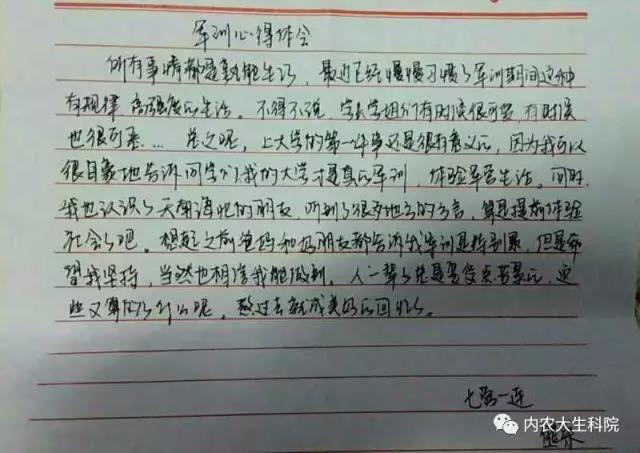 军训心得体会
所有事情都是熟能生巧，最近已经慢慢习惯了军训期间这种
有规律高强度的生活。不得不说，学长学姐们有时候很可爱，有时候
也很可恶…总之呢，上大学的第一件事还是很有意义的，因为我可以
很自豪地告诉同学们我的大学才是真的军训，体验军营生活。同时，
我也认识了天南海北的朋友，听到了很多地方的方言，算是提前体验
社会了吧。想起之前爸妈和好朋友都告诉我军训是特别累，但是希
望我坚持，当然也相信我能做到。人一辈子总是要受点苦累的，这
些又算的了什么呢。熬过去就成美好的回忆。
七营一连
内农大生科院